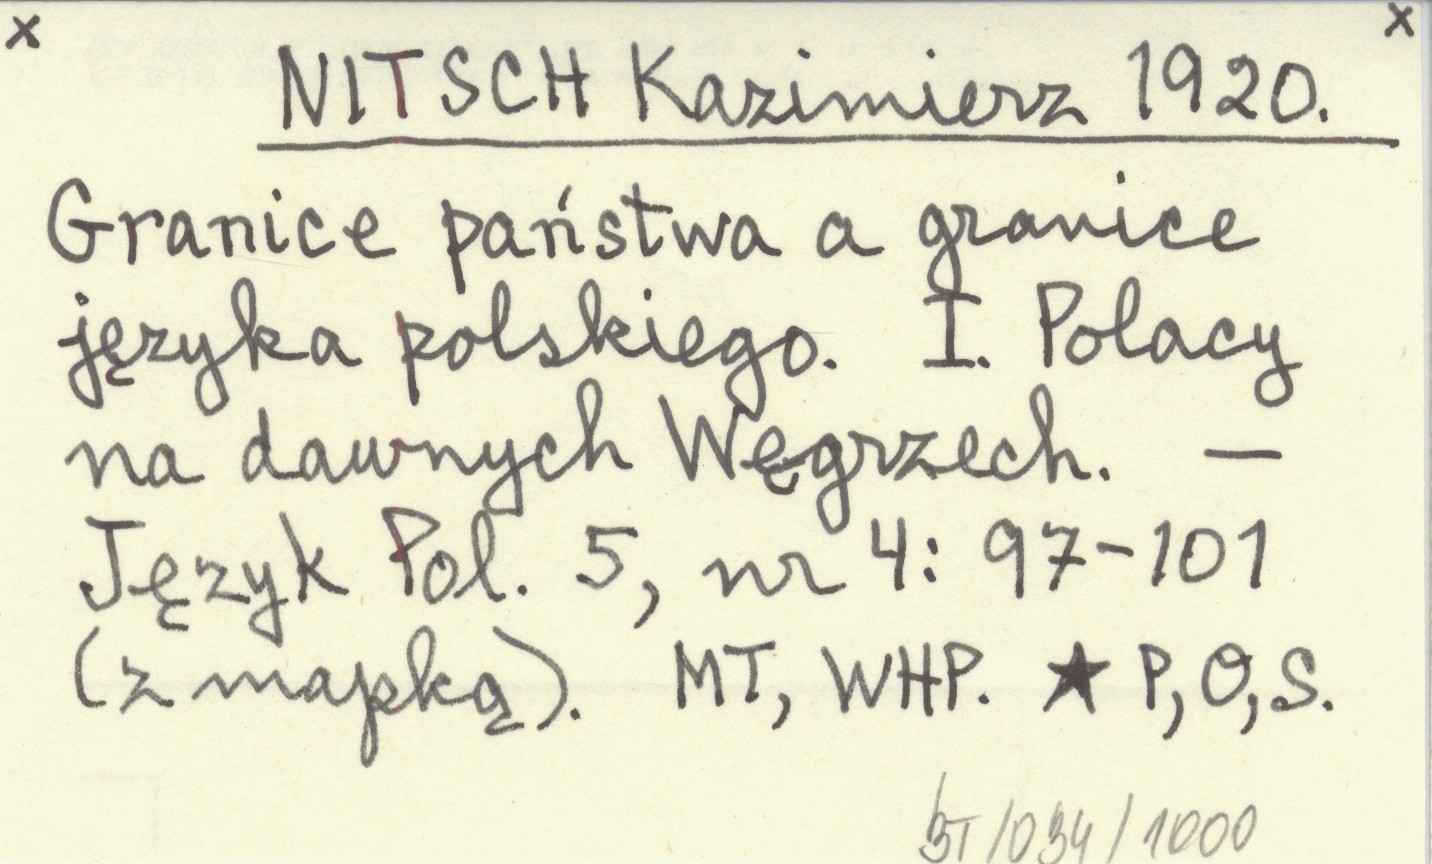 x x
NITSCH Kazimierz 1920.
Granice państwa a granice
języka polskiego. I. Polacy
na dawnych Węgrzech. —
Język Pol. 5, nr 4: 97-101
(z mapką). MT, WHP. ★ P, O, S.
/034/1000